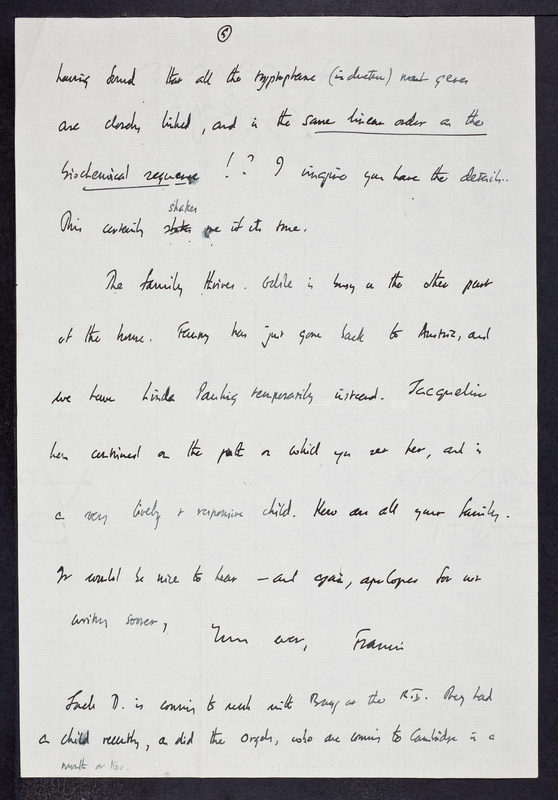 5
having found that all the tryptophane (induction) mut genes
are closely linked, and in the same linear order as the
biochemical sequence !? I imagine you have the details..
shakes
This certainly me if its true.
The family thrives. Odile is busy on the other part
of the house. has just gone back to Austria, and
we have Linda Pauling temporarily instead. Jacqueline
has continued on the path on which you set her, and is
a very lively & responsive child. How are all your family.
It would be nice to hear — and again, apologies for not
writing sooner,
Yours ever, Francis
Jack D. is coming to work with Bragg at the R.I. They had
a child recently, as did the Orgels, who are coming to Cambridge in a
month or two.